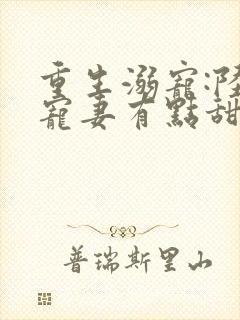 重生溺寵:陸
寵妻有點甜
普瑞斯里山